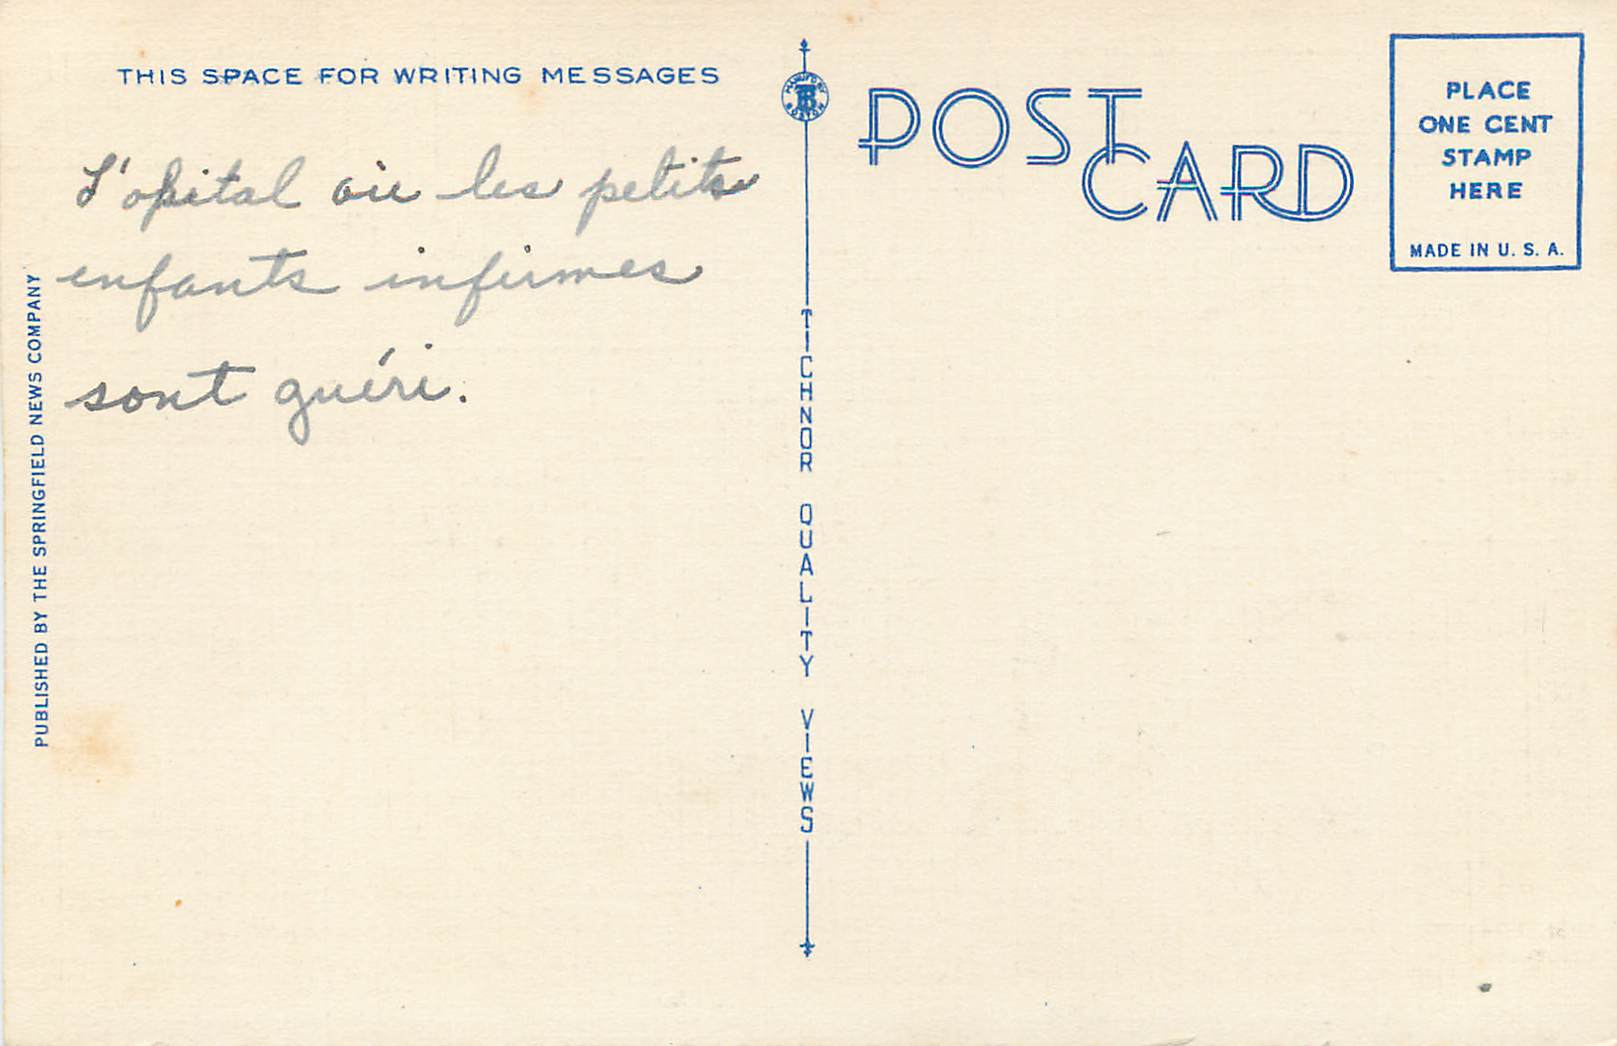 THIS SPACE FOR WRITING MESSAGES
L'opital où les petits
enfants infirmes
sont guéri.
PUBLISHED BY THE SPRINGFIELD NEWS COMPANY
TICHNOR QUALITY VIEWS
POST
CARD
PLACE
ONE CENT
STAMP
HERE
MADE IN U. S. A.